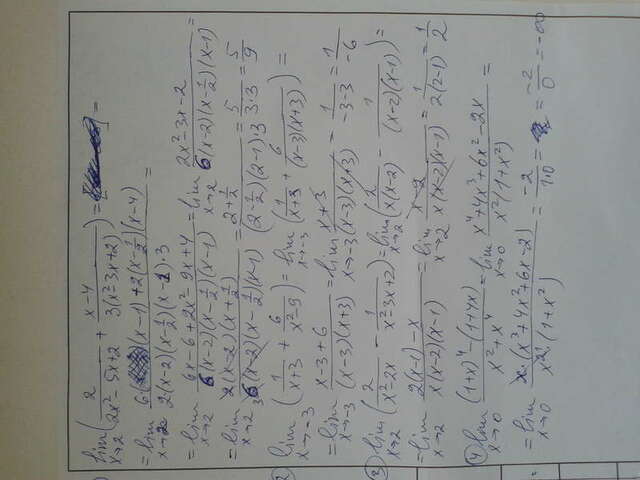 lim x→2 (2/(2x²-5x+2) + (x-4)/(3(x²-3x+2))) =
= lim x→2 (6(x-1)+2(x-1/2)(x-4))/(2(x-2)(x-1/2)(x-1)·3) =
= lim x→2 (6x-6+2x²-9x+4)/(6(x-2)(x-1/2)(x-1)) = lim x→2 (2x²-3x-2)/(6(x-2)(x-1/2)(x-1)) =
= lim x→2 (2(x-2)(x+1/2))/(6(x-2)(x-1/2)(x-1)) = (2+1/2)/((2-1/2)(2-1)·3) = 5/(3·3) = 5/9
2) lim x→-3 (1/(x+3) + 6/(x²-9)) = lim x→-3 (1/(x+3) + 6/((x-3)(x+3))) =
= lim x→-3 (x-3+6)/((x-3)(x+3)) = lim x→-3 (x+3)/((x-3)(x+3)) = 1/(-3-3) = 1/-6
3) lim x→2 (2/(x²-2x) - 1/(x²-3x+2)) = lim x→2 (2/(x(x-2)) - 1/((x-2)(x-1))) =
= lim x→2 (2(x-1)-x)/(x(x-2)(x-1)) = lim x→2 (x-2)/(x(x-2)(x-1)) = 1/(2(2-1)) = 1/2
4) lim x→0 ((1+x)⁴-(1+4x))/(x²+x⁴) = lim x→0 (x⁴+4x³+6x²-2x)/(x²(1+x²)) =
= lim x→0 (x·(x³+4x²+6x-2))/(x²·(1+x²)) = -2/(1·0) = -2/0 = -∞